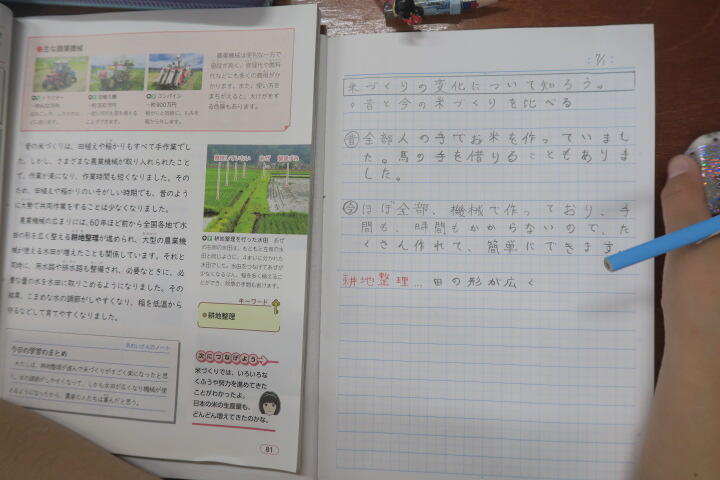 主な農業機械
トラクター
田植え機
コンバイン
農業機械は便利な一方で
値段が高く、修理代や燃料
代などにも多くの費用がか
かります。また、使い方を
まちがえると、大けがをす
る危険もあります。
昔の米づくりは、田植えや稲かりもすべて手作業でし
た。しかし、さまざまな農業機械が取り入れられたこと
で、作業が楽になり、作業時間も短くなりました。その
ため、田植えや稲かりのいそがしい時期でも、昔のよう
に大勢で共同作業をすることは少なくなりました。
農業機械の広まりには、60年ほど前から全国各地で水
田の形を広く整える耕地整理が進められ、大型の農業機
械が使える水田が増えたことも関係しています。それと
同時に、用水路や排水路も整備され、必要なときに、必
要な量の水を水田に取りこめるようになりました。その
結果、こまめな水の調節がしやすくなり、稲を低温から
守るなどして育てやすくなりました。
耕地整理を行った水田
キーワード
耕地整理
今日の学習のまとめ
次につなげよう
米づくりでは、いろいろな
くふうや努力を進めてきた
ことがわかったよ。
日本の米の生産量も、
どんどん増えてきたのかな。
81
7/1
米づくりの変化について知ろう。
昔と今の米づくりを比べる
昔 全部人の手でお米を作っていまし
た。馬の手を借りることもありま
した。
今 ほぼ全部、機械で作っており、手
間も、時間もかからないので、た
くさん作れて、簡単にできます
耕地整理…田の形が広く